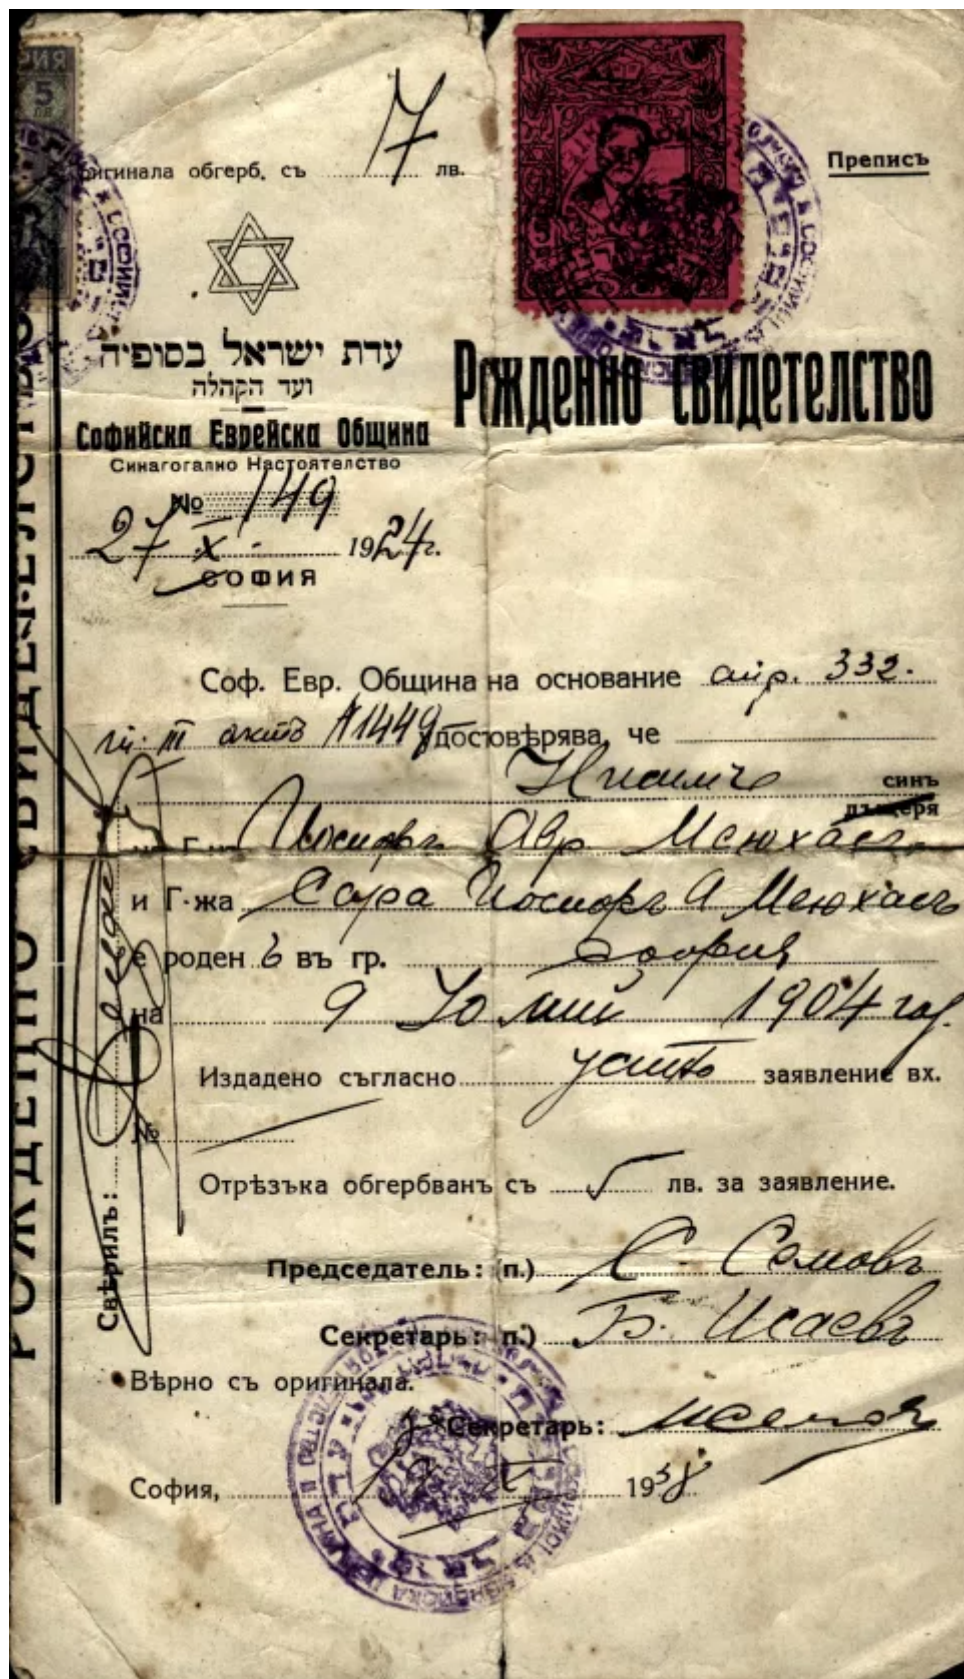 РИЯ
5
лв.
Оригинала обгерб. съ 17 лв.
Преписъ
עדת ישראל בסופיה
ועד הקהלה
Софийска Еврейска Община
Синагогално Настоятелство
Рождено свидетелство
№ 149
27 X 1924 г.
СОФИЯ
Соф. Евр. Община на основание 332.
т. III актъ №1449 удостовѣрява, че
Нисимъ синъ
дъщеря
на Г-нъ Иосифъ Авр. Меюхасъ
и Г-жа Сара Иосифъ А Меюхасъ
е роден ъ въ гр. София
на 9 Юлий 1904 год.
Издадено съгласно устно заявление вх.
№
Отрѣзъка обгербванъ съ 5 лв. за заявление.
Председатель: (п.) С. Семовъ
Секретарь: п.) Б. Исаевъ
Вѣрно съ оригинала.
Секретарь:
София, 1938
Свѣрилъ:
РОЖДЕННО СВИДЕТЕЛСТВО